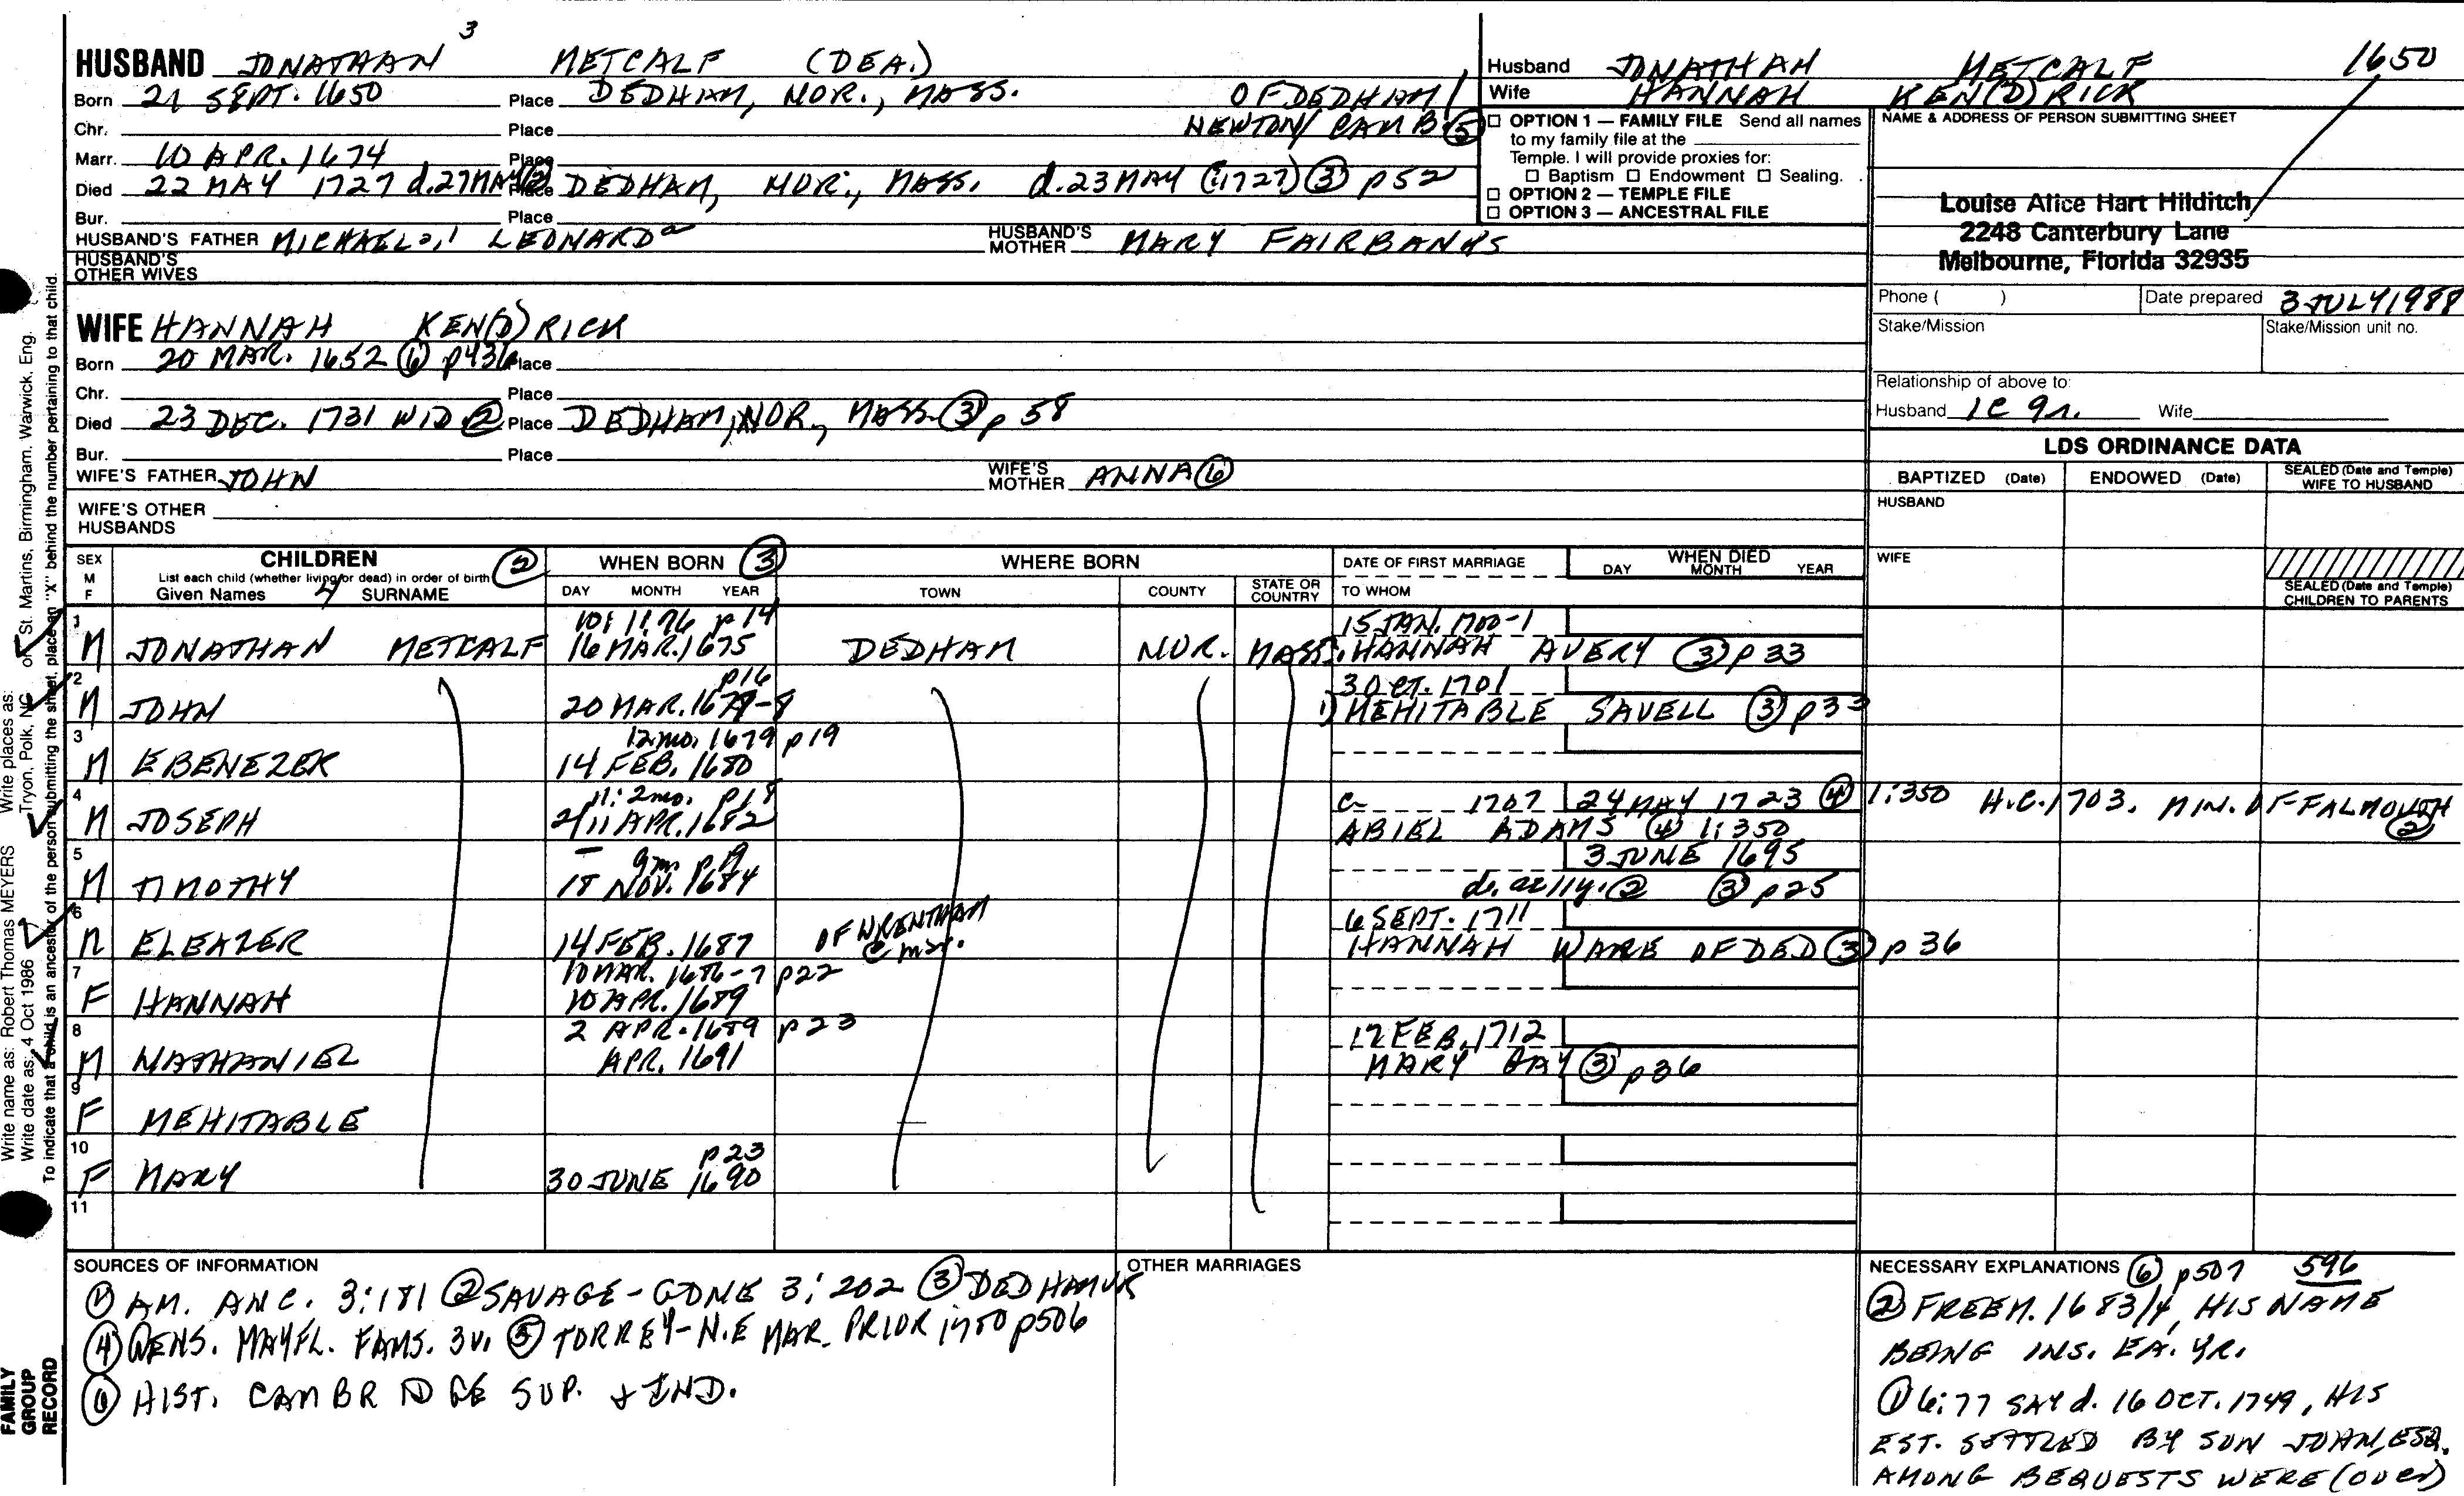 3
HUSBAND JONATHAN METCALF (DEA.)
Born 21 SEPT. 1650 Place DEDHAM, NOR., MASS. OF DEDHAM/
Chr. Place NEWTON/CAMB. ⑤
Marr. 10 APR. 1674 Place
Died 22 MAY 1727 d. 27 MAY ② Place DEDHAM, NOR., MASS. d. 23 MAY (1727) ③ p52
Bur. Place
HUSBAND'S FATHER MICHAEL LEONARD HUSBAND'S MOTHER MARY FAIRBANKS
HUSBAND'S OTHER WIVES
Husband JONATHAN METCALF 1650
Wife HANNAH KEN(D)RICK
☐ OPTION 1 — FAMILY FILE Send all names
to my family file at the
Temple. I will provide proxies for:
☐ Baptism ☐ Endowment ☐ Sealing.
☐ OPTION 2 — TEMPLE FILE
☐ OPTION 3 — ANCESTRAL FILE
NAME & ADDRESS OF PERSON SUBMITTING SHEET
Louise Alice Hart Hilditch
2248 Canterbury Lane
Melbourne, Florida 32935
Phone ( ) Date prepared 3 JULY 1988
Stake/Mission Stake/Mission unit no.
Relationship of above to:
Husband 1C 9r. Wife
WIFE HANNAH KEN(D)RICK
Born 20 MAR. 1652 ⑥ p436 Place
Chr. Place
Died 23 DEC. 1731 WID ② Place DEDHAM, NOR., MASS. ③ p 58
Bur. Place
WIFE'S FATHER JOHN WIFE'S MOTHER ANNA ⑥
WIFE'S OTHER HUSBANDS
LDS ORDINANCE DATA
BAPTIZED (Date) ENDOWED (Date) SEALED (Date and Temple) WIFE TO HUSBAND
HUSBAND
WIFE
SEALED (Date and Temple) CHILDREN TO PARENTS
SEX M F
CHILDREN ②
List each child (whether living or dead) in order of birth
Given Names SURNAME
WHEN BORN ③
DAY MONTH YEAR
WHERE BORN
TOWN COUNTY STATE OR COUNTRY
DATE OF FIRST MARRIAGE
TO WHOM
WHEN DIED
DAY MONTH YEAR
1 10: 1: 76 p14 15 JAN. 1700-1
M JONATHAN METCALF 16 MAR. 1675 DEDHAM NOR. MASS. HANNAH AVERY ③ p 33
2 p16 3 OCT. 1701
M JOHN 20 MAR. 1677-8 1) MEHITABLE SAVELL ③ p33
3 12 mo. 1679 p19
M EBENEZER 14 FEB. 1680
4 11: 2mo. p18 c 1707 24 MAY 1723 ④ 1:350 H.C. 1703. MIN. OF FALMOUTH ②
M JOSEPH 2/11 APR. 1682 ABIEL ADAMS ④ 1:350
5 9m p19 3 JUNE 1695
M TIMOTHY 18 NOV. 1684 d. early. ② ③ p25
6 OF WRENTHAM 6 SEPT. 1711
M ELEAZER 14 FEB. 1687 @ mar. HANNAH WARE OF DED ③ p 36
7 10 MAR. 1686-7 p22
F HANNAH 10 APR. 1689
8 2 APR. 1689 p23 12 FEB. 1712
M NATHANIEL APR. 1691 MARY GAY ③ p36
9
F MEHITABLE
10 p23
F MARY 30 JUNE 1690
11
SOURCES OF INFORMATION
① AM. ANC. 3:181 ② SAVAGE-GDNE 3:202 ③ DEDHAM VR
④ GENS. MAYFL. FAMS. 3v. ⑤ TORREY-N.E MAR. PRIOR 1700 p506
⑥ HIST. CAMBRIDGE SUP. & IND.
OTHER MARRIAGES
NECESSARY EXPLANATIONS ⑥ p507 596
② FREEM. 1683/4, HIS NAME
BEING INS. EA. YR.
① 6:77 SAY d. 16 OCT. 1749, HIS
EST. SETTLED BY SON JOHN, ESQ.
AMONG BEQUESTS WERE (over)
Write name as: Robert Thomas MEYERS Write places as: of St. Martins, Birmingham, Warwick, Eng.
Write date as: 4 Oct 1986 Tryon, Polk, NC
To indicate that a child is an ancestor of the person submitting the sheet, place an "X" behind the number pertaining to that child.
FAMILY
GROUP
RECORD